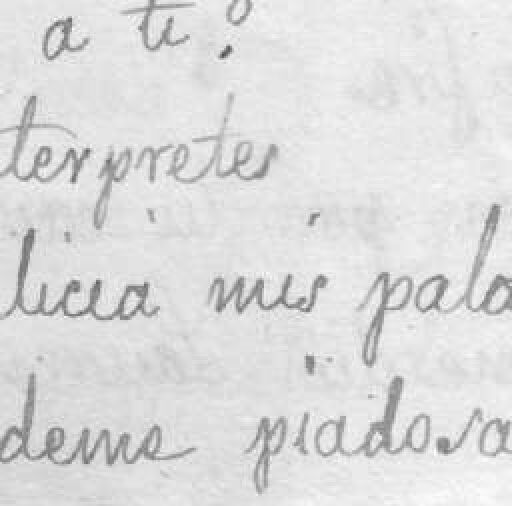 a ti?
terpretes
licia mis pala
deme piadosa